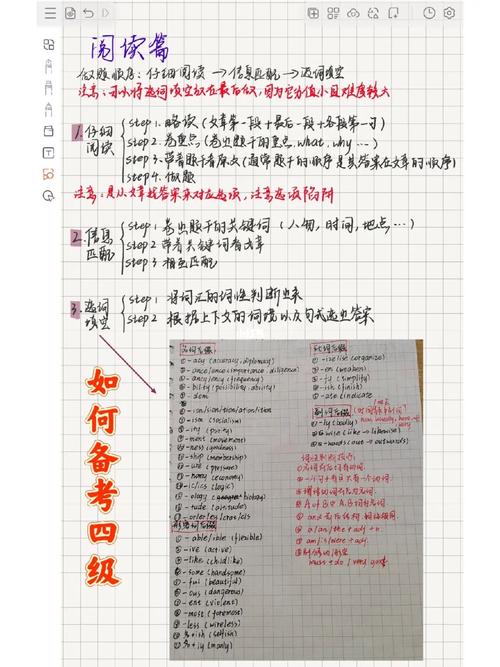 阅读篇
做题顺序：仔细阅读 → 信息匹配 → 选词填空
注意：可以将选词填空放在最后做，因为它分值小且难度较大
1. 仔细阅读
step 1. 略读（文章第一段＋最后一段＋各段第一句）
step 2. 卷重点（卷出题干的重点，what，why…）
step 3. 带着题干看原文（通常题干的顺序是其答案在文章的顺序）
step 4. 做题
注意：是从文章找答案来对应选项，注意选项陷阱
2. 信息匹配
step 1 卷出题干的关键词（人物，时间，地点…）
step 2 带着关键词看文章
step 3 相互匹配
3. 选词填空
step 1 将词汇的词性判断出来
step 2 根据上下文的词境以及句式选出答案
如何备考四级
名词后缀
①-acy (accuracy, diplomacy)
②-ance/ence (importance, diligence)
③-ancy/ency (frequency)
④-bility (possibility, ability)
⑤-dom
⑥-ion/sion/ation/ition
⑦-ism (socialism)
⑧-ity (purity)
⑨-ment (movement)
⑩-ness (goodness)
-ship (membership)
-ure (pressure)
-nomy (economy)
-ic/ics (logic)
-ology (biology)
-tude (attitude)
形容词后缀
①-able/ible (flexible)
②-ive (active)
③-like (childlike)
④-some (handsome)
⑤-ful (beautiful)
⑥-ous (dangerous)
⑦-ent (violent)
⑧-most (foremost)
⑨-less (wireless)
⑩名+ish (selfish)
名+ly (manly)
动词后缀
①-ize/ise (organize)
②-en (weaken)
③-fy (simplify)
④-ish (finish)
⑤-ate (indicate)
副词后缀
①-ly (badly)
②-wise (like → likewise)
③-wards (out → outwards)
词性判别技巧：
②一个句子有且只有一个动词.
④A of B 中 A、B 词均为名词.
⑤and 前后结构、词性相同.
⑥a/an/the + adj + n.
⑦am/is/were + adj.
must + do / very good